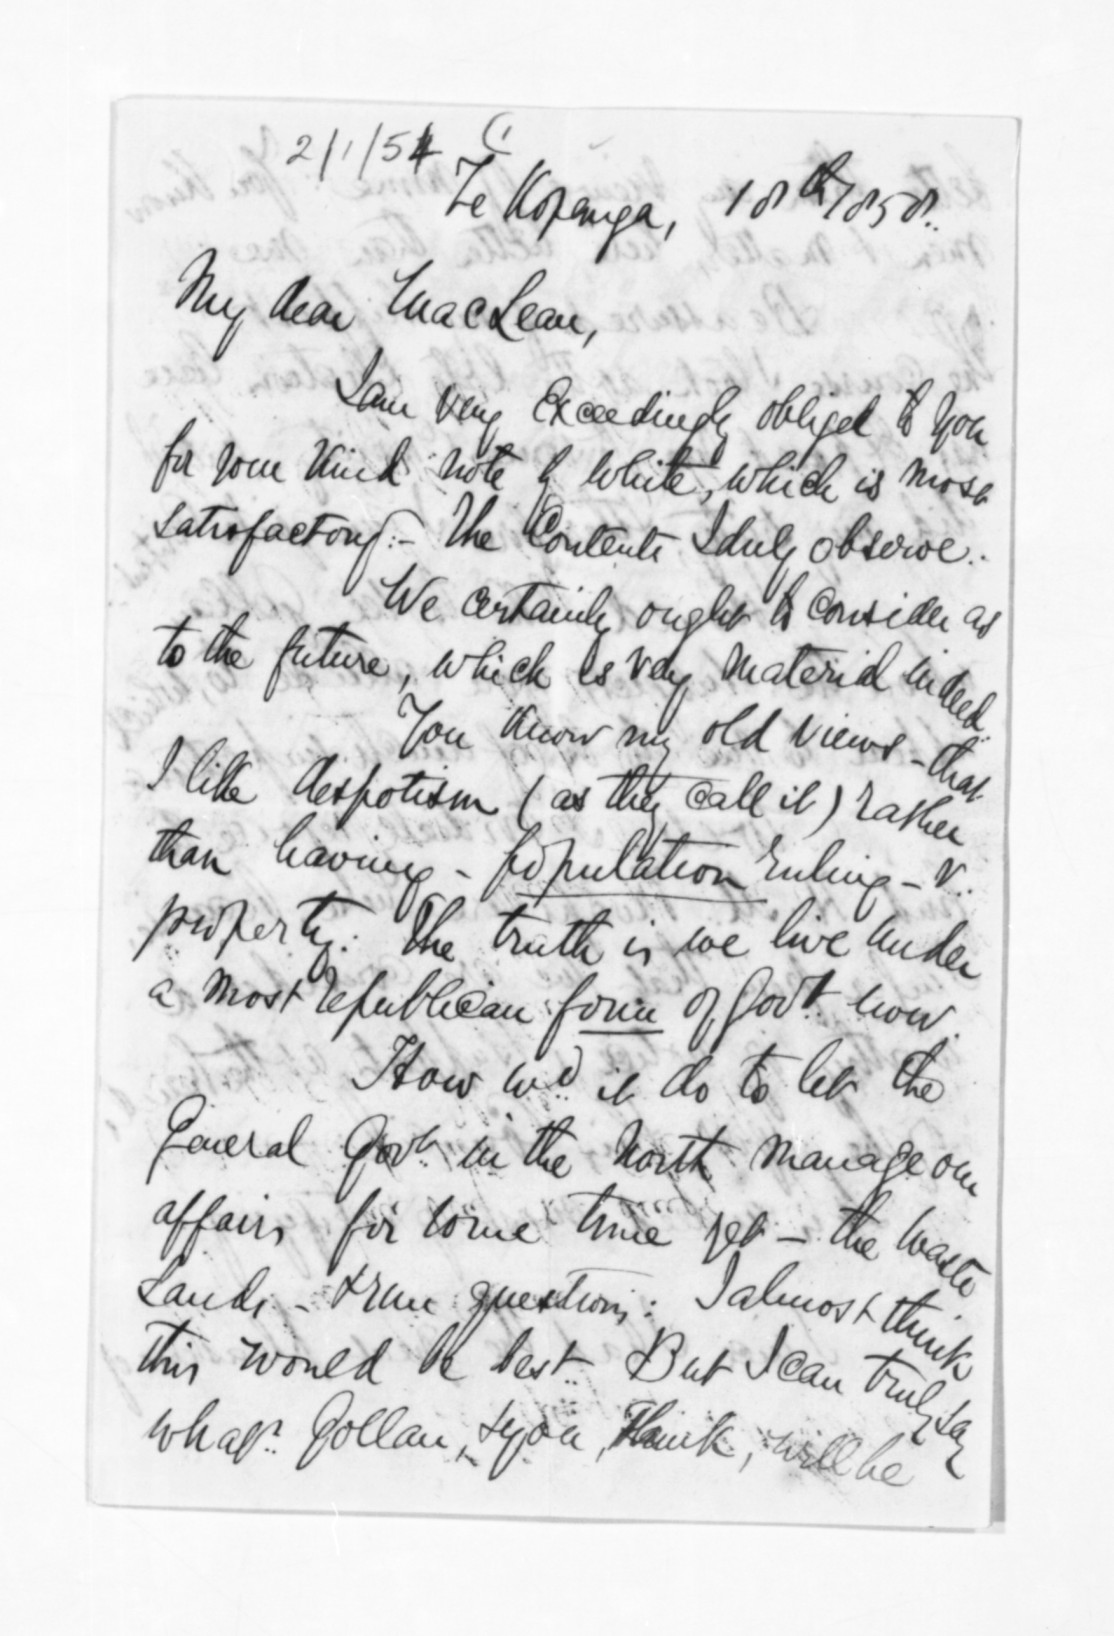 2/1/54
Te Kopanga, 18th /1858.
My dear MacLean,
I am very exceedingly obliged to you
for your kind note by White, which is most
satisfactory:- The Contents I duly observe.
We certainly ought to consider as
to the future, which is very material indeed.
You know my old views - that
I like despotism (as they call it) rather
than having - population ruling - v.
property. The truth is we live under
a most republican form of Govt. now.
How wd. it do to let the
General Govt. in the North manage our
affairs for some time yet - the Waste
Lands - & run questions: I almost think
this would be best. But I can truly say
what Gollan, & you, think, will be